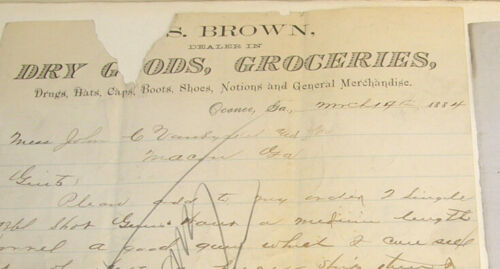 S. BROWN,
DEALER IN
DRY GOODS, GROCERIES,
Drugs, Hats, Caps, Boots, Shoes, Notions and General Merchandise.
Oconee, Ga, Mch 19th 1884
Mess John C
Macon Ga
Gents;
Please add to my order 2 Single
Shot Guns a medium length
a good gun which I can sell